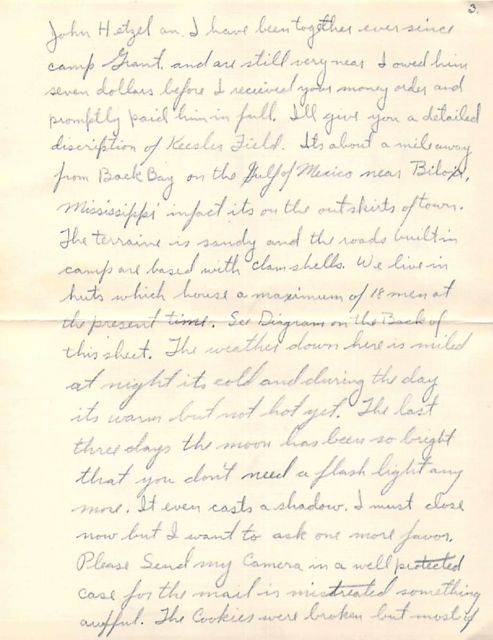 3.
John Hetzel an. I have been together ever since
camp Grant. and are still very near I owed him
seven dollars before I recieved your money order and
promptly paid him in full. I'll give you a detailed
discription of Keesler Field. Its about a mile away
from Back Bay on the Gulf of Mexico near Biloxi,
Mississippi infact its on the outskirts of town.
The terraine is sandy and the roads built in
camp are based with clam shells. We live in
huts which house a maximum of 18 men at
the present time. See Diagram on the Back of
this sheet. The weather down here is miled
at night its cold and during the day
its warm but not hot yet. The last
three days the moon has been so bright
that you don't need a flash light any
more. It even casts a shadow. I must close
now but I want to ask one more favor.
Please Send my Camera in a well protected
case for the mail is mistreated something
awfful. The Cookies were broken but most of